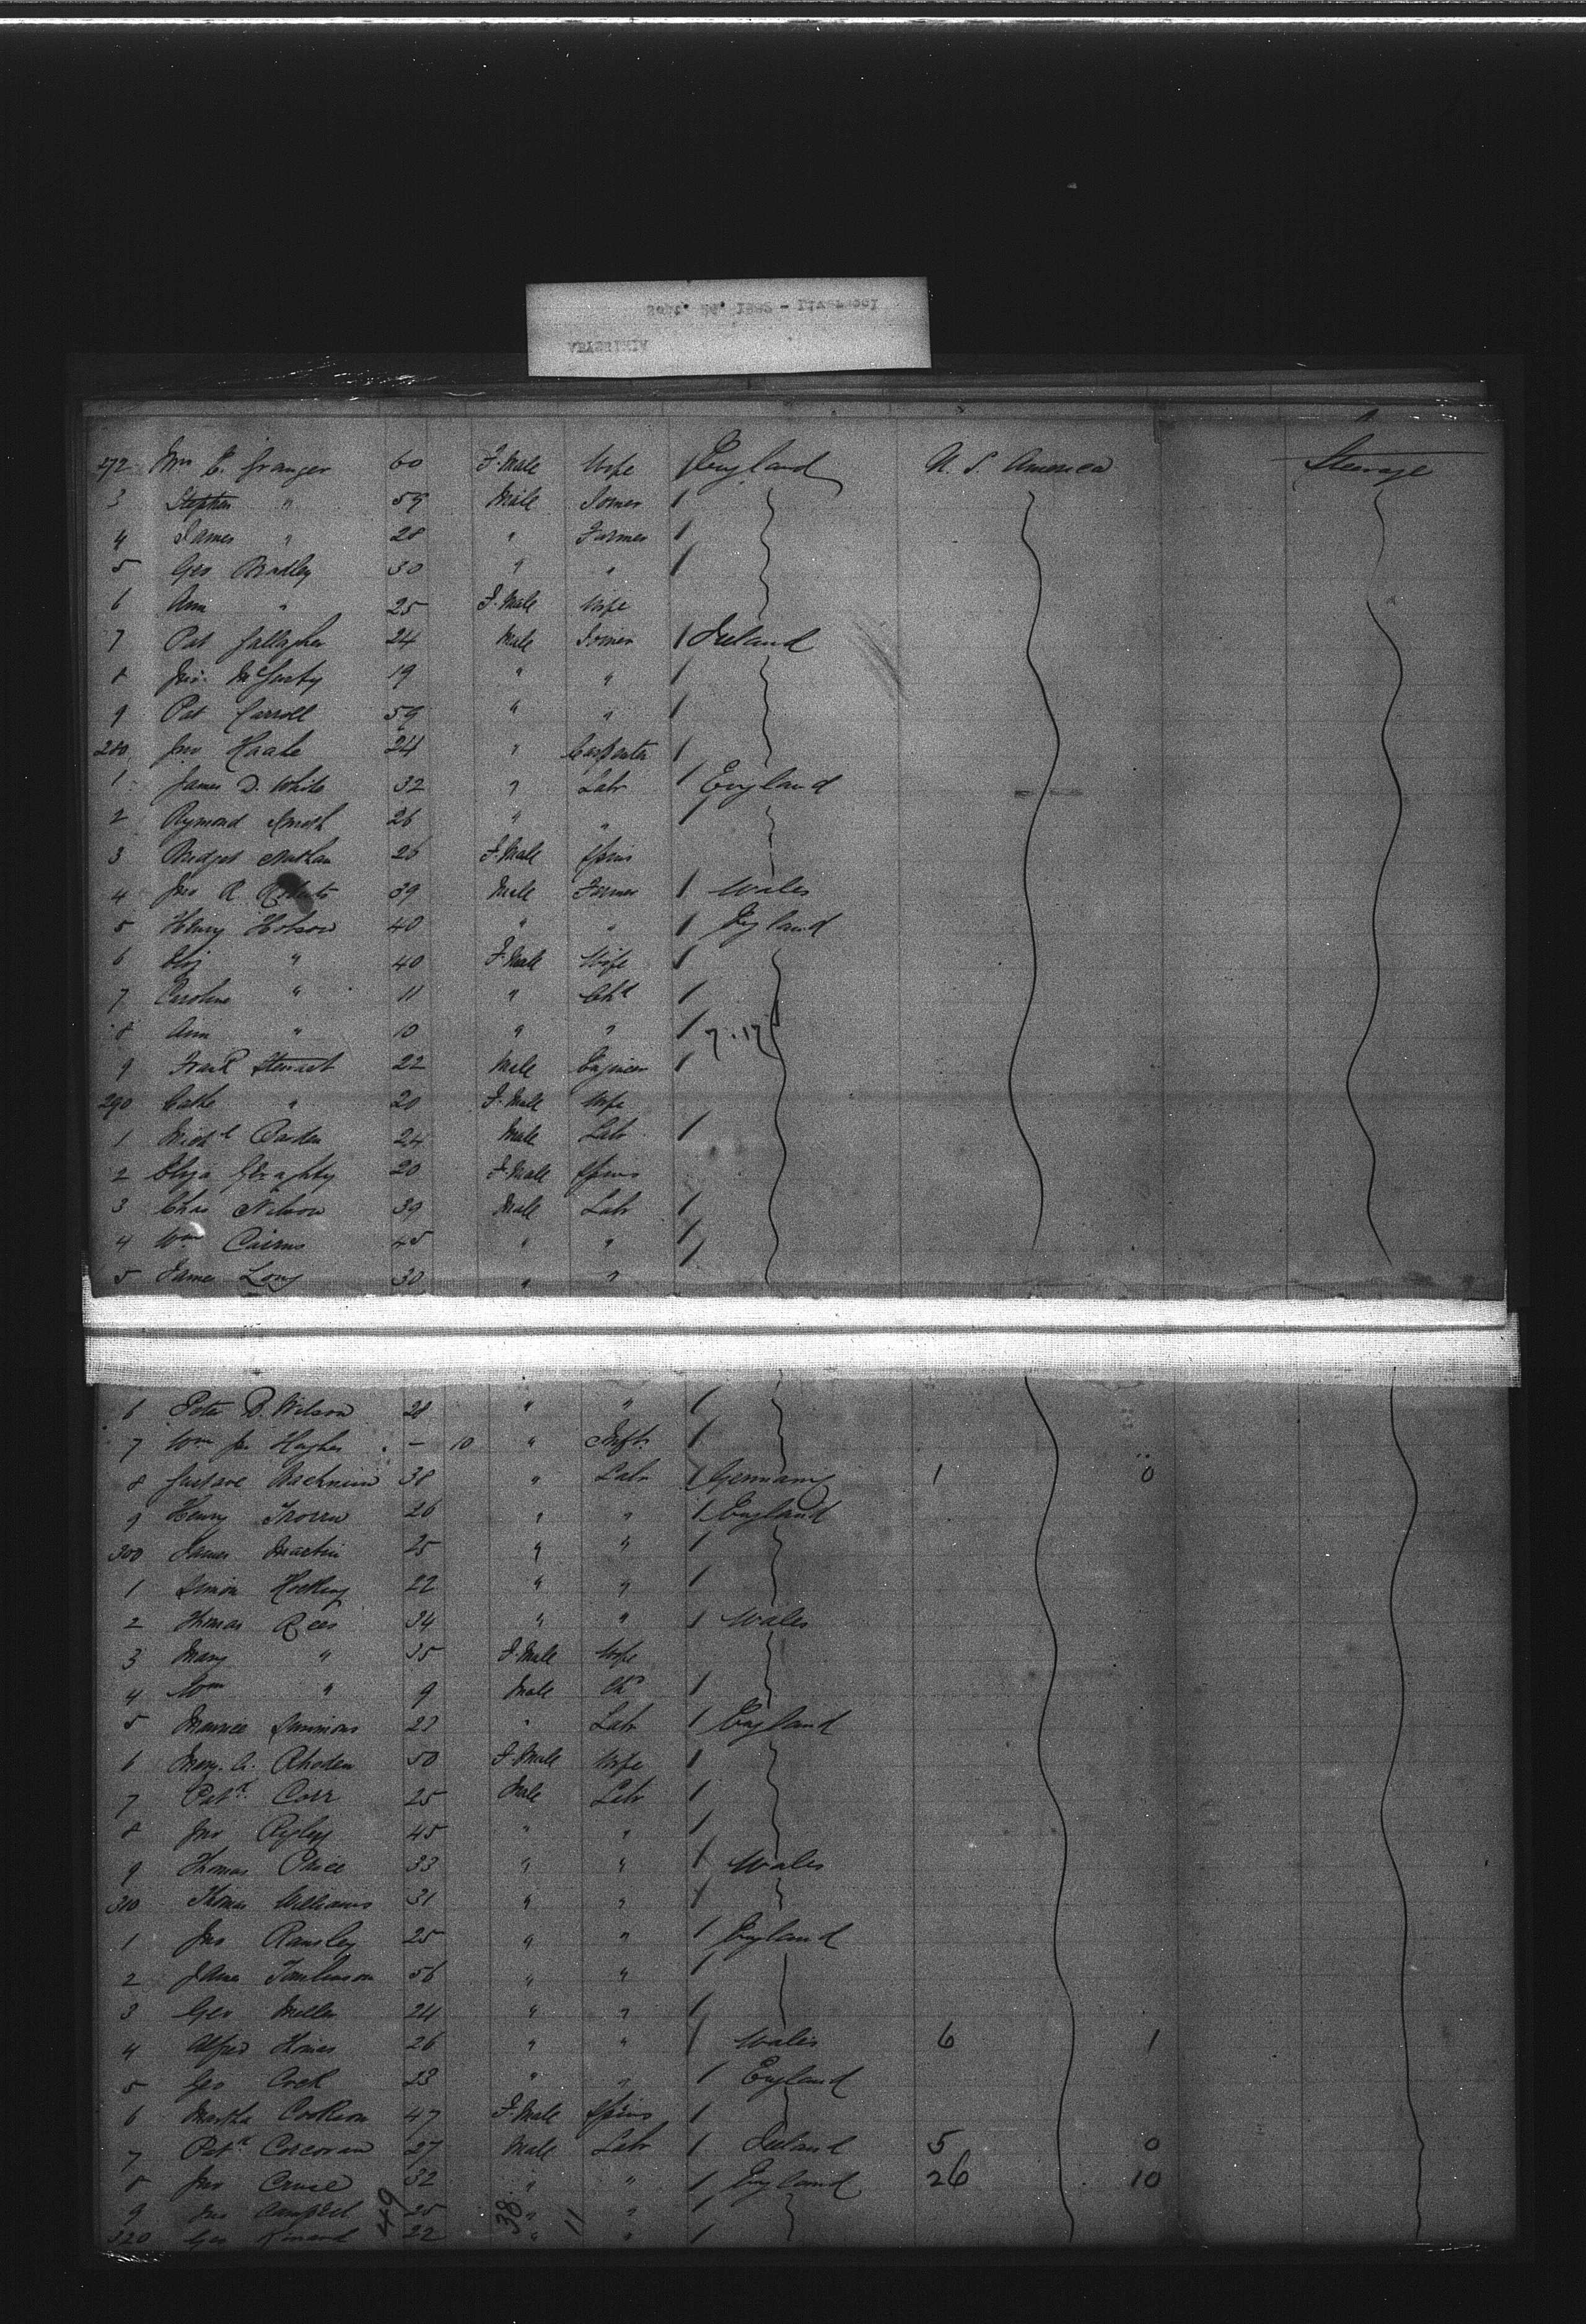 272 Mrs E. Granger 60 F. Male Wife 1 England U. S. America Steerage
3 Stephen " 59 Male Joiner 1
4 James " 28 " Farmer 1
5 Geo Bradley 30 " " 1
6 Ann " 25 F. Male Wife
7 Pat Gallagher 24 Male Joiner 1 Ireland
8 Jno. McGurty 19 " " 1
9 Pat Carroll 59 " " 1
280 Jno 24 " Carpenter 1
1 James D. White 32 " Labr 1 England
2 Rymond Smith 26 " " 1
3 Bridget 26 F. Male Spins
4 Jno R Roberts 39 Male Farmer 1 Wales
5 Henry Hobson 40 " " 1 England
6 Eliz " 40 F. Male Wife 1
7 Caroline " 11 " Chd 1
8 Ann " 10 " " 1 7.17
9 Frank Stewart 22 Male Engineer 1
290 Cathe " 20 F. Male Wife
1 Michl 24 Male Labr 1
2 Eliza Geraghty 20 F. Male Spins
3 Chas Nilson 39 Male Labr 1
4 Wm Cairns 45 " " 1
5 James Long 30 " " 1
6 Peter B. Wilson 28 " " 1
7 Wm Jn Hughes - 10 " Inft. 1
8 Gustave 38 " Labr 1 Germany 1 0
9 Henry 26 " " 1 England
300 James Martin 25 " " 1
1 Simon Hocking 22 " " 1
2 Thomas Rees 34 " " 1 Wales
3 Mary " 35 F. Male Wife
4 Wm " 9 Male Chd 1
5 Maurice Simmons 23 " Labr 1 England
6 Mary. A. Rhoden 50 F. Male Wife 1
7 Patk Carr 25 Male Labr 1
8 Jno Rigley 45 " " 1
9 Thomas Price 33 " " 1 Wales
310 Thomas Williams 31 " " 1
1 Jno Ransley 25 " " 1 England
2 James Tomlinson 56 " " 1
3 Geo Miller 24 " " 1
4 Alfred 26 " " 1 Wales 6 1
5 Geo Cock 23 " " 1 England
6 Martha Cookson 47 F. Male Spins 1
7 Patk Corcoran 27 Male Labr 1 Ireland 5 0
8 Jno Cruse 32 " " 1 England 26 10
9 Jno Campbell 25 " " 1
320 Geo Kinard 22 " " 1
49 38 11